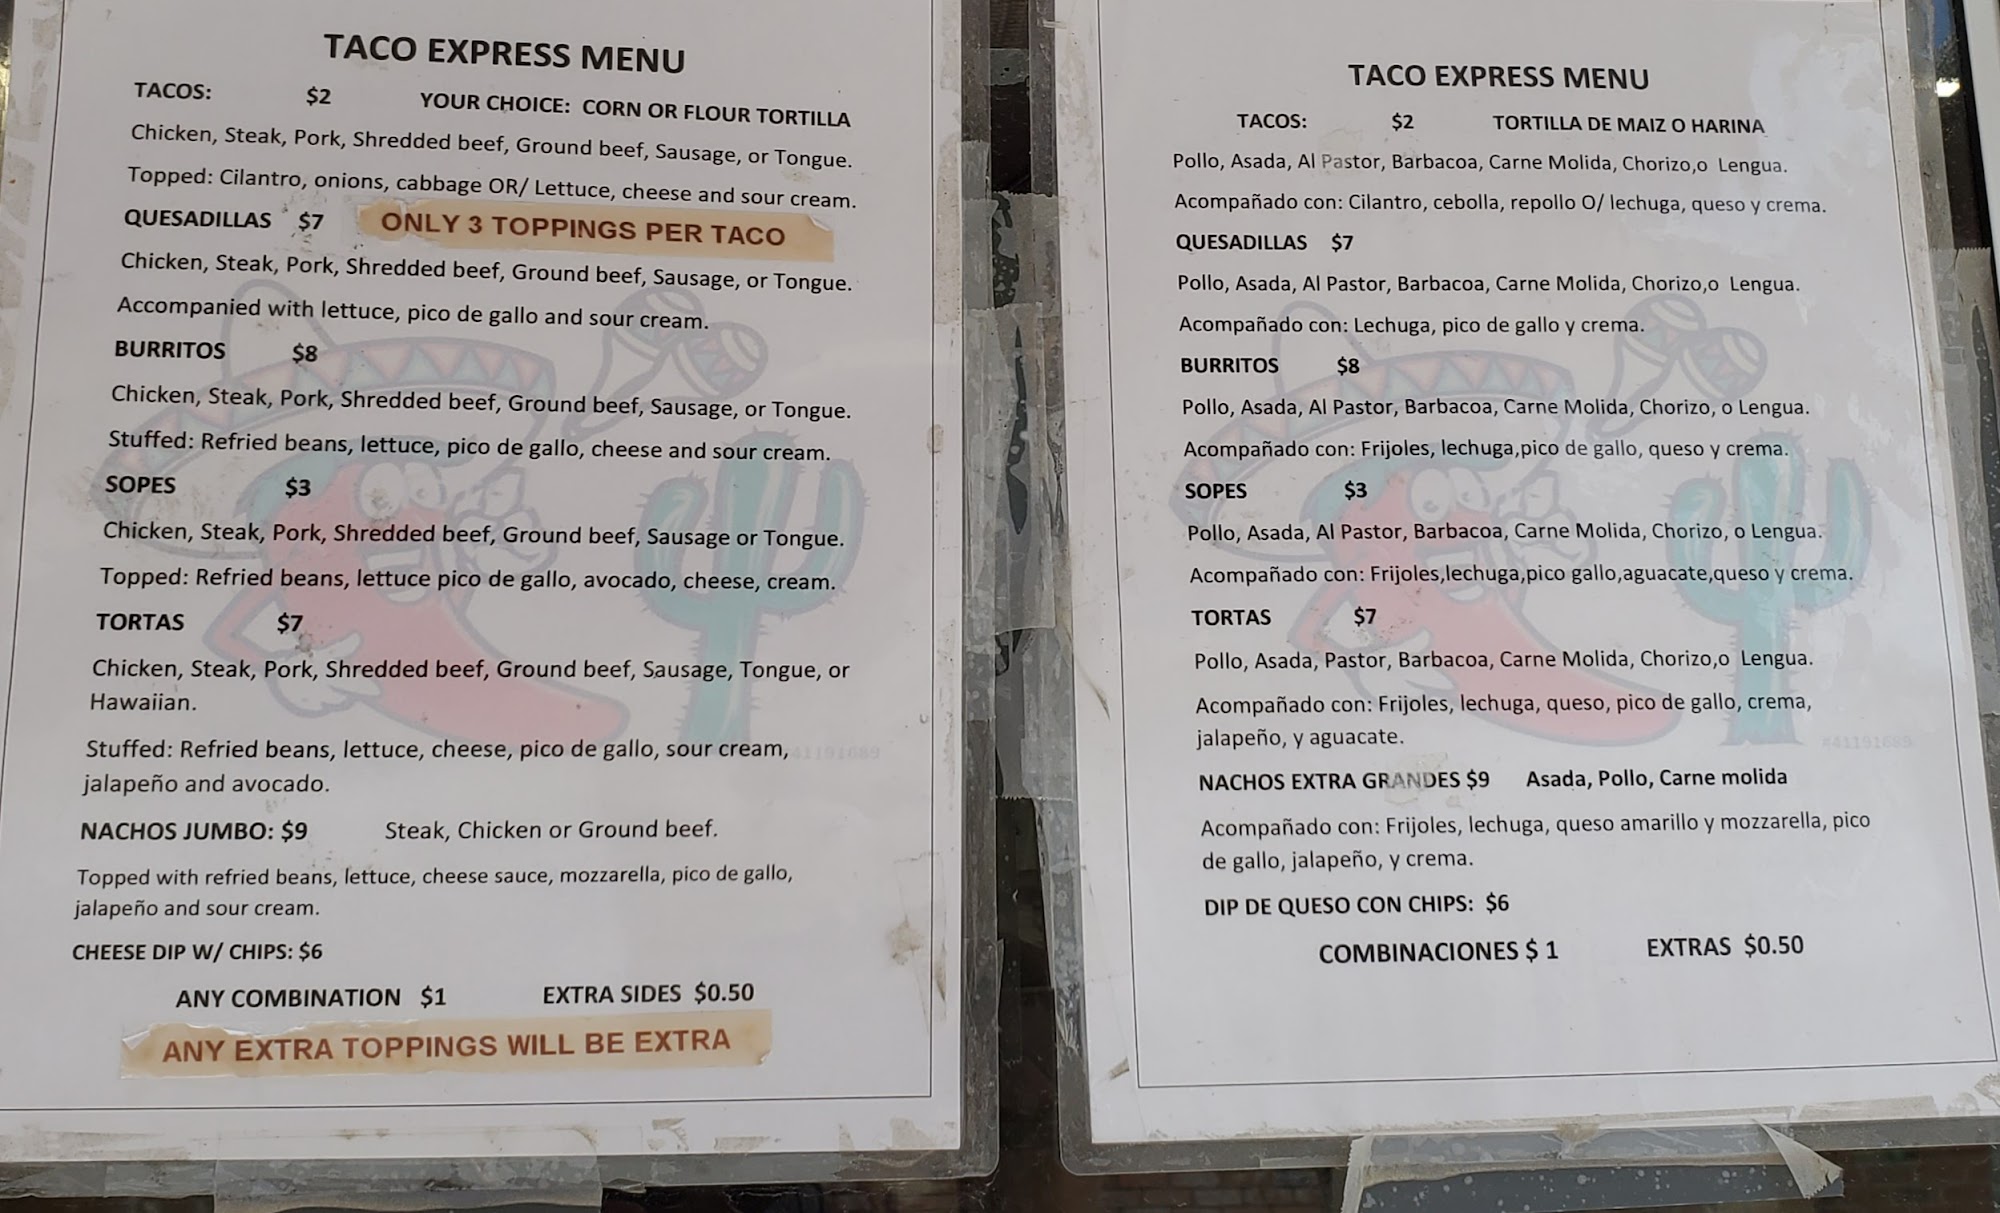 TACO EXPRESS MENU
TACOS: $2 YOUR CHOICE: CORN OR FLOUR TORTILLA
Chicken, Steak, Pork, Shredded beef, Ground beef, Sausage, or Tongue.
Topped: Cilantro, onions, cabbage OR/ Lettuce, cheese and sour cream.
QUESADILLAS $7 ONLY 3 TOPPINGS PER TACO
Chicken, Steak, Pork, Shredded beef, Ground beef, Sausage, or Tongue.
Accompanied with lettuce, pico de gallo and sour cream.
BURRITOS $8
Chicken, Steak, Pork, Shredded beef, Ground beef, Sausage, or Tongue.
Stuffed: Refried beans, lettuce, pico de gallo, cheese and sour cream.
SOPES $3
Chicken, Steak, Pork, Shredded beef, Ground beef, Sausage or Tongue.
Topped: Refried beans, lettuce pico de gallo, avocado, cheese, cream.
TORTAS $7
Chicken, Steak, Pork, Shredded beef, Ground beef, Sausage, Tongue, or
Hawaiian.
Stuffed: Refried beans, lettuce, cheese, pico de gallo, sour cream,
jalapeño and avocado.
NACHOS JUMBO: $9 Steak, Chicken or Ground beef.
Topped with refried beans, lettuce, cheese sauce, mozzarella, pico de gallo,
jalapeño and sour cream.
CHEESE DIP W/ CHIPS: $6
ANY COMBINATION $1 EXTRA SIDES $0.50
ANY EXTRA TOPPINGS WILL BE EXTRA
TACO EXPRESS MENU
TACOS: $2 TORTILLA DE MAIZ O HARINA
Pollo, Asada, Al Pastor, Barbacoa, Carne Molida, Chorizo,o Lengua.
Acompañado con: Cilantro, cebolla, repollo O/ lechuga, queso y crema.
QUESADILLAS $7
Pollo, Asada, Al Pastor, Barbacoa, Carne Molida, Chorizo,o Lengua.
Acompañado con: Lechuga, pico de gallo y crema.
BURRITOS $8
Pollo, Asada, Al Pastor, Barbacoa, Carne Molida, Chorizo, o Lengua.
Acompañado con: Frijoles, lechuga,pico de gallo, queso y crema.
SOPES $3
Pollo, Asada, Al Pastor, Barbacoa, Carne Molida, Chorizo, o Lengua.
Acompañado con: Frijoles,lechuga,pico gallo,aguacate,queso y crema.
TORTAS $7
Pollo, Asada, Pastor, Barbacoa, Carne Molida, Chorizo,o Lengua.
Acompañado con: Frijoles, lechuga, queso, pico de gallo, crema,
jalapeño, y aguacate.
NACHOS EXTRA GRANDES $9 Asada, Pollo, Carne molida
Acompañado con: Frijoles, lechuga, queso amarillo y mozzarella, pico
de gallo, jalapeño, y crema.
DIP DE QUESO CON CHIPS: $6
COMBINACIONES $ 1 EXTRAS $0.50